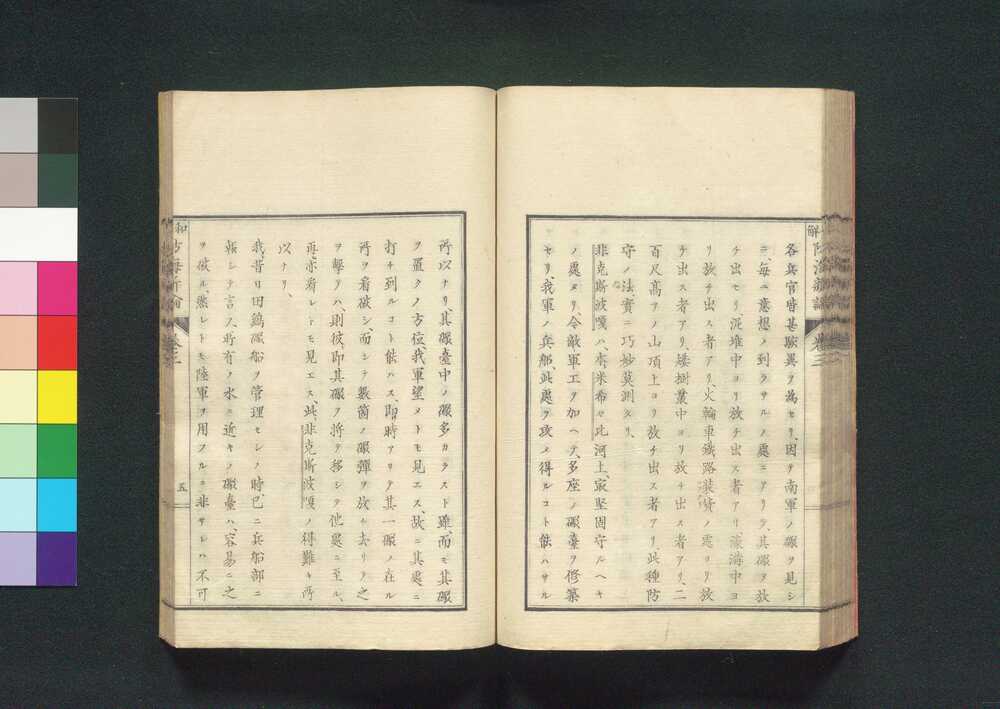 各兵官皆甚駭異ヲ為セリ、因テ南軍ノ礮ヲ見シ
ニ、毎ニ意想ノ到ラサルノ處ニアリテ、其礮ヲ放
チ出セリ、泥堆中ヨリ放チ出ス者アリ、濠溝中ヨ
リ放チ出ス者アリ、火輪車鐵路装貨ノ處ヨリ放
チ出ス者アリ、矮樹叢中ヨリ放チ出ス者アリ、二
百尺高アノ山頂上ヨリ放チ出ス者アリ、此種防
守ノ法實ニ巧妙莫測タリ、
非克斯波嘎ハ、米希セ比河上、寂堅固守ルヘキ
ノ處タリ、今敵軍工ヲ加ヘテ、多座ノ礮臺ヲ修築
セリ、我軍ノ兵船、此處ヲ攻メ得ルコト能ハサル
所以ナリ、其礮臺中ノ礮多カラスト雖、而モ其礮
ヲ置クノ方位、我軍望メトモ見エス、故ニ其處ニ
打チ到ルコト能ハス、即時アリテ其一礮ノ在ル
所ヲ看破シ、而シテ數箇ノ礮彈ヲ放ヒ去リテ之
ヲ擊テハ、則彼、即其礮ヲ将テ移シテ他處ニ至ル、
再亦看レトモ見エス、此非克斯波嘎ノ得難キ所
以ナリ、
我、昔日田鷄礮船ヲ管理セシノ時、已ニ兵船部ニ
報シテ言フ、所有ノ水ニ近キノ礮臺ハ、容易ニ之
ヲ破ル、然レトモ陸軍ヲ用フルニ非サレハ不可
五